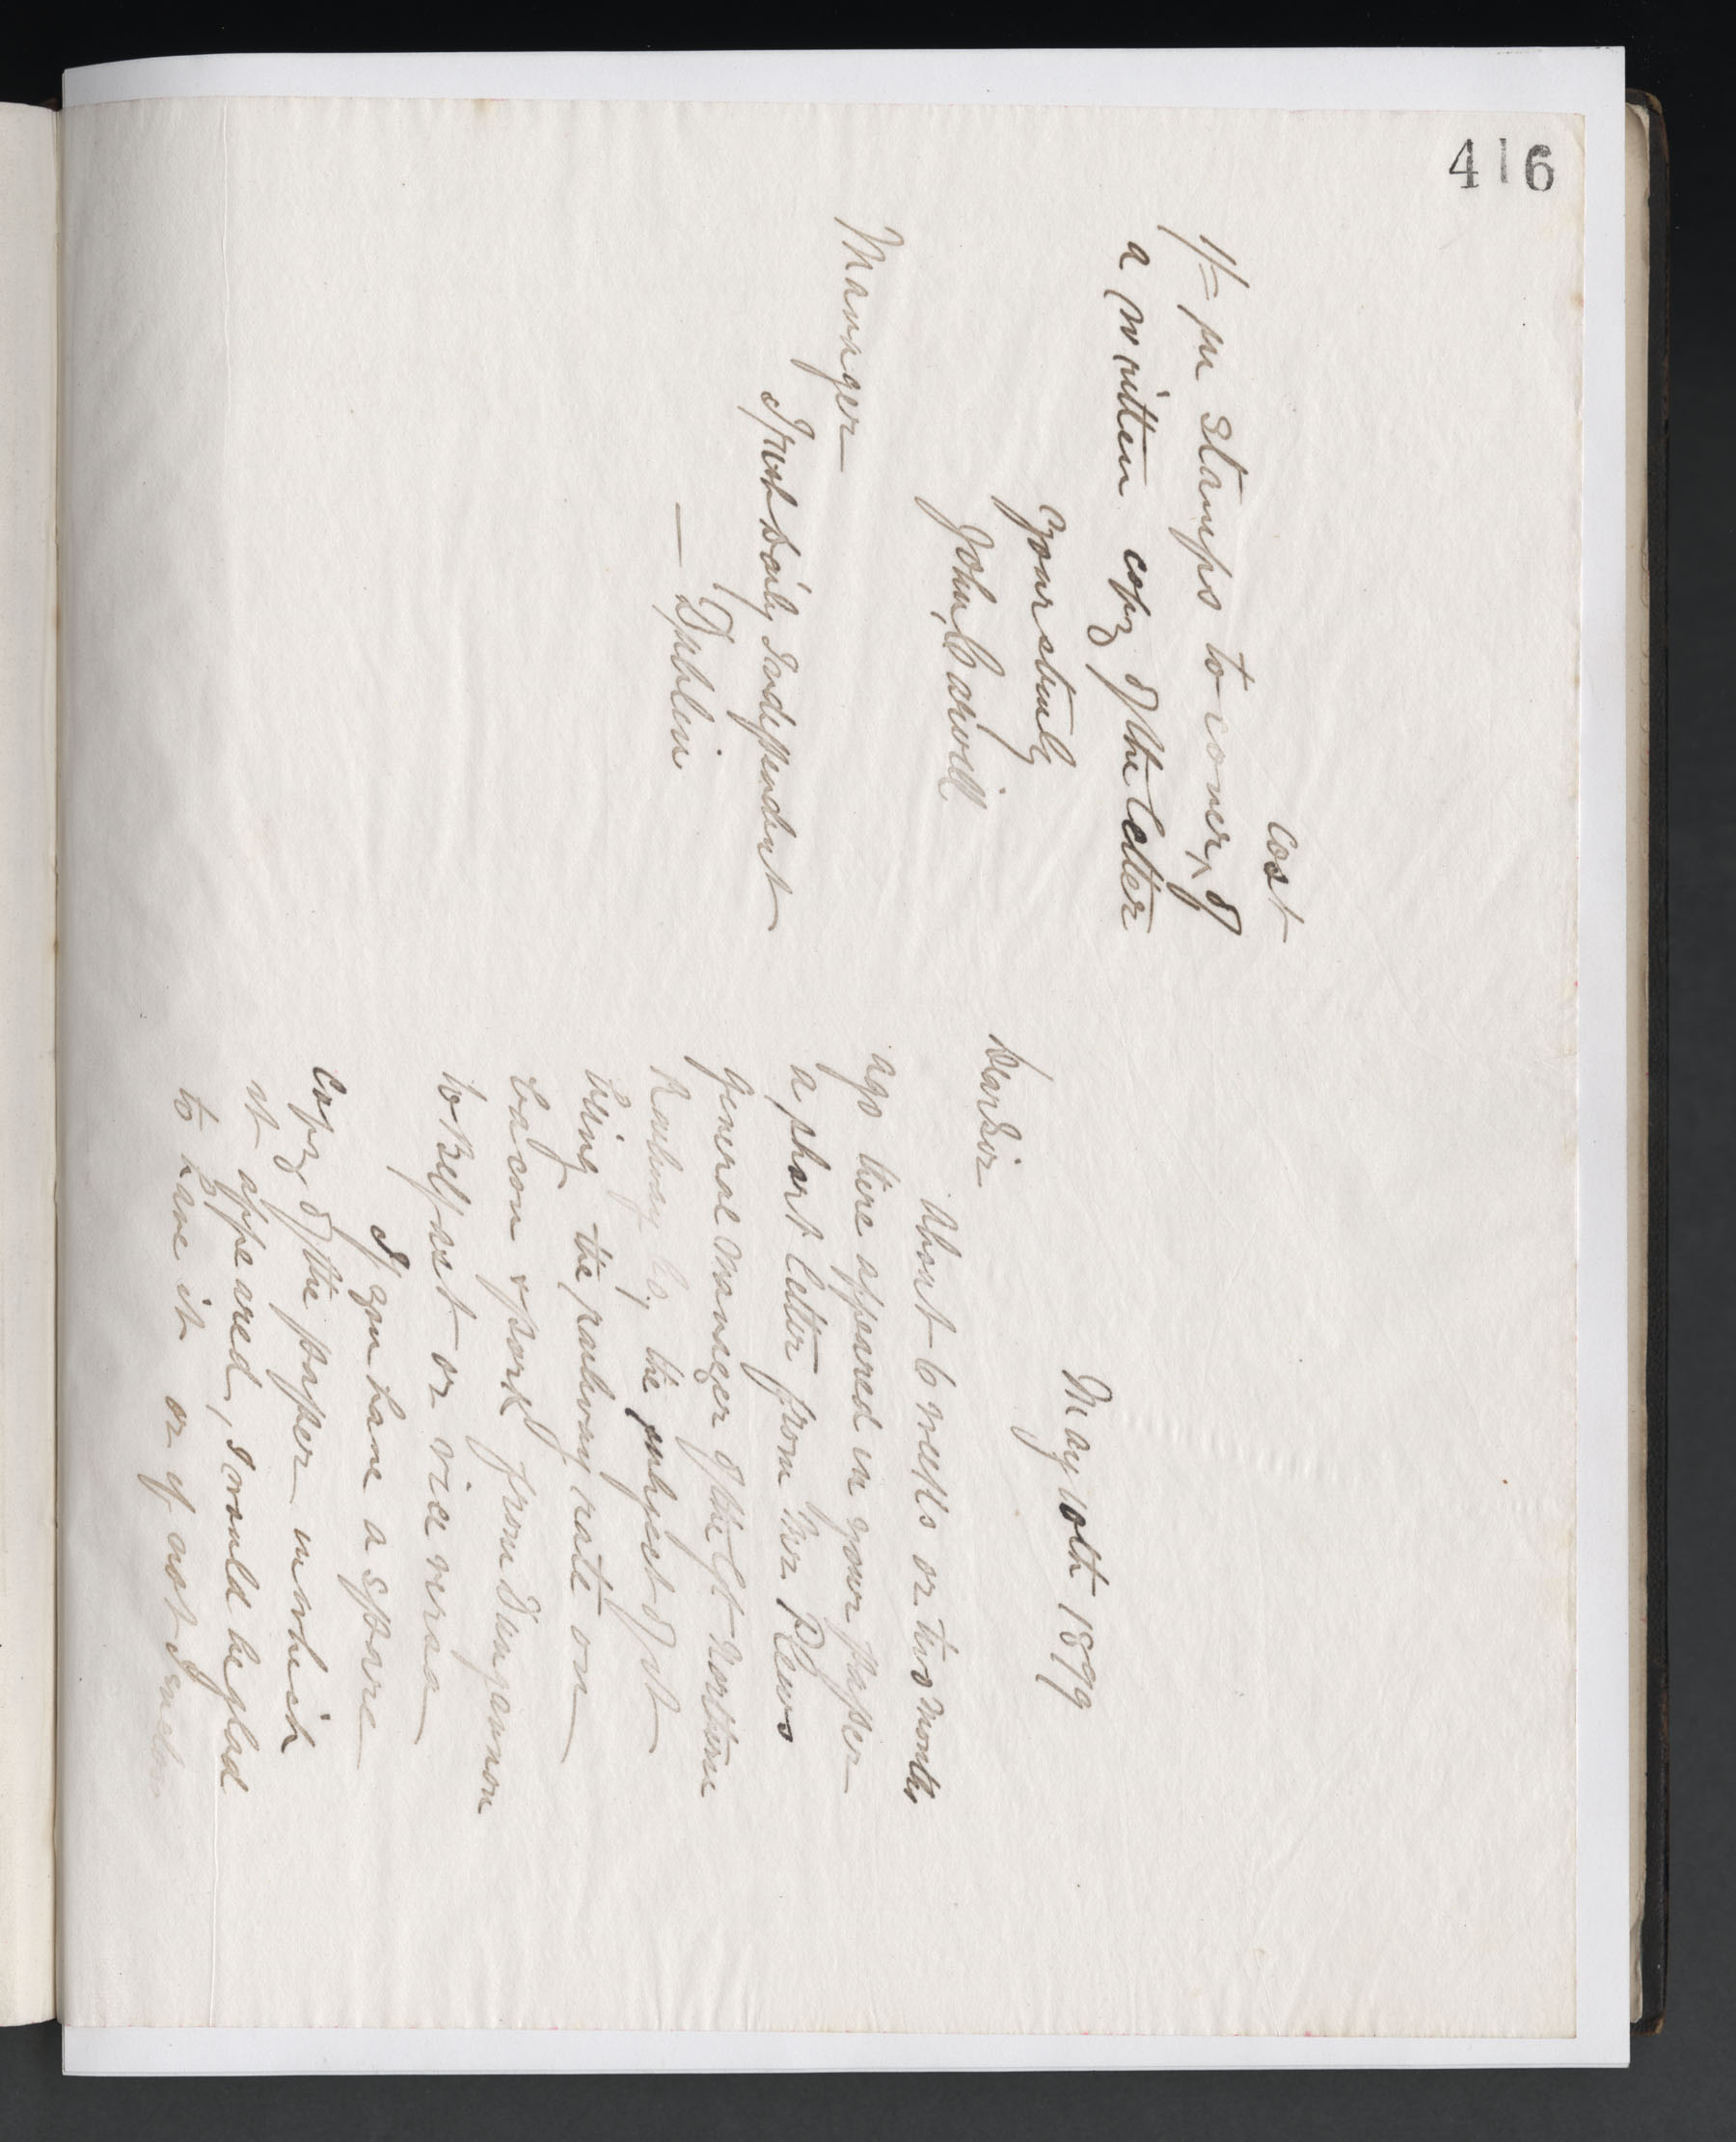 416
May 10th 1899
Dear Sir
About 6 weeks or two months
ago there appeared in your paper
a short letter from Mr Plews
general manager of the Gt Northern
Railway Co, the subject of it
being the railway rate on
bacon & pork from Dungannon
to Belfast or vice versa
If you have a spare
copy of the paper in which
it appeared, I would be glad
to have it or if not I enclose
1/- in stamps to cover ^ cost of
a written copy of the letter
Yours truly
John Carvill
Manager
Irish Daily Independent
Dublin